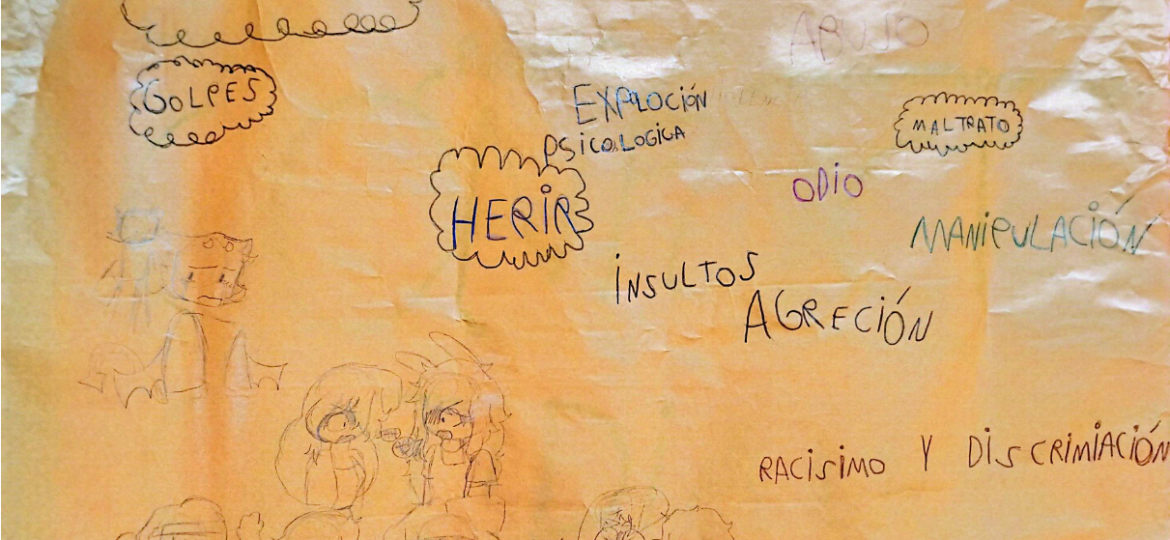 ABUJO
GOLPES
EXPLOCIÓN
PSICOLOGICA
MALTRATO
ODIO
HERIR
MANIPULACIÓN
INSULTOS
AGRECIÓN
RACISIMO Y DISCRIMIACIÓN